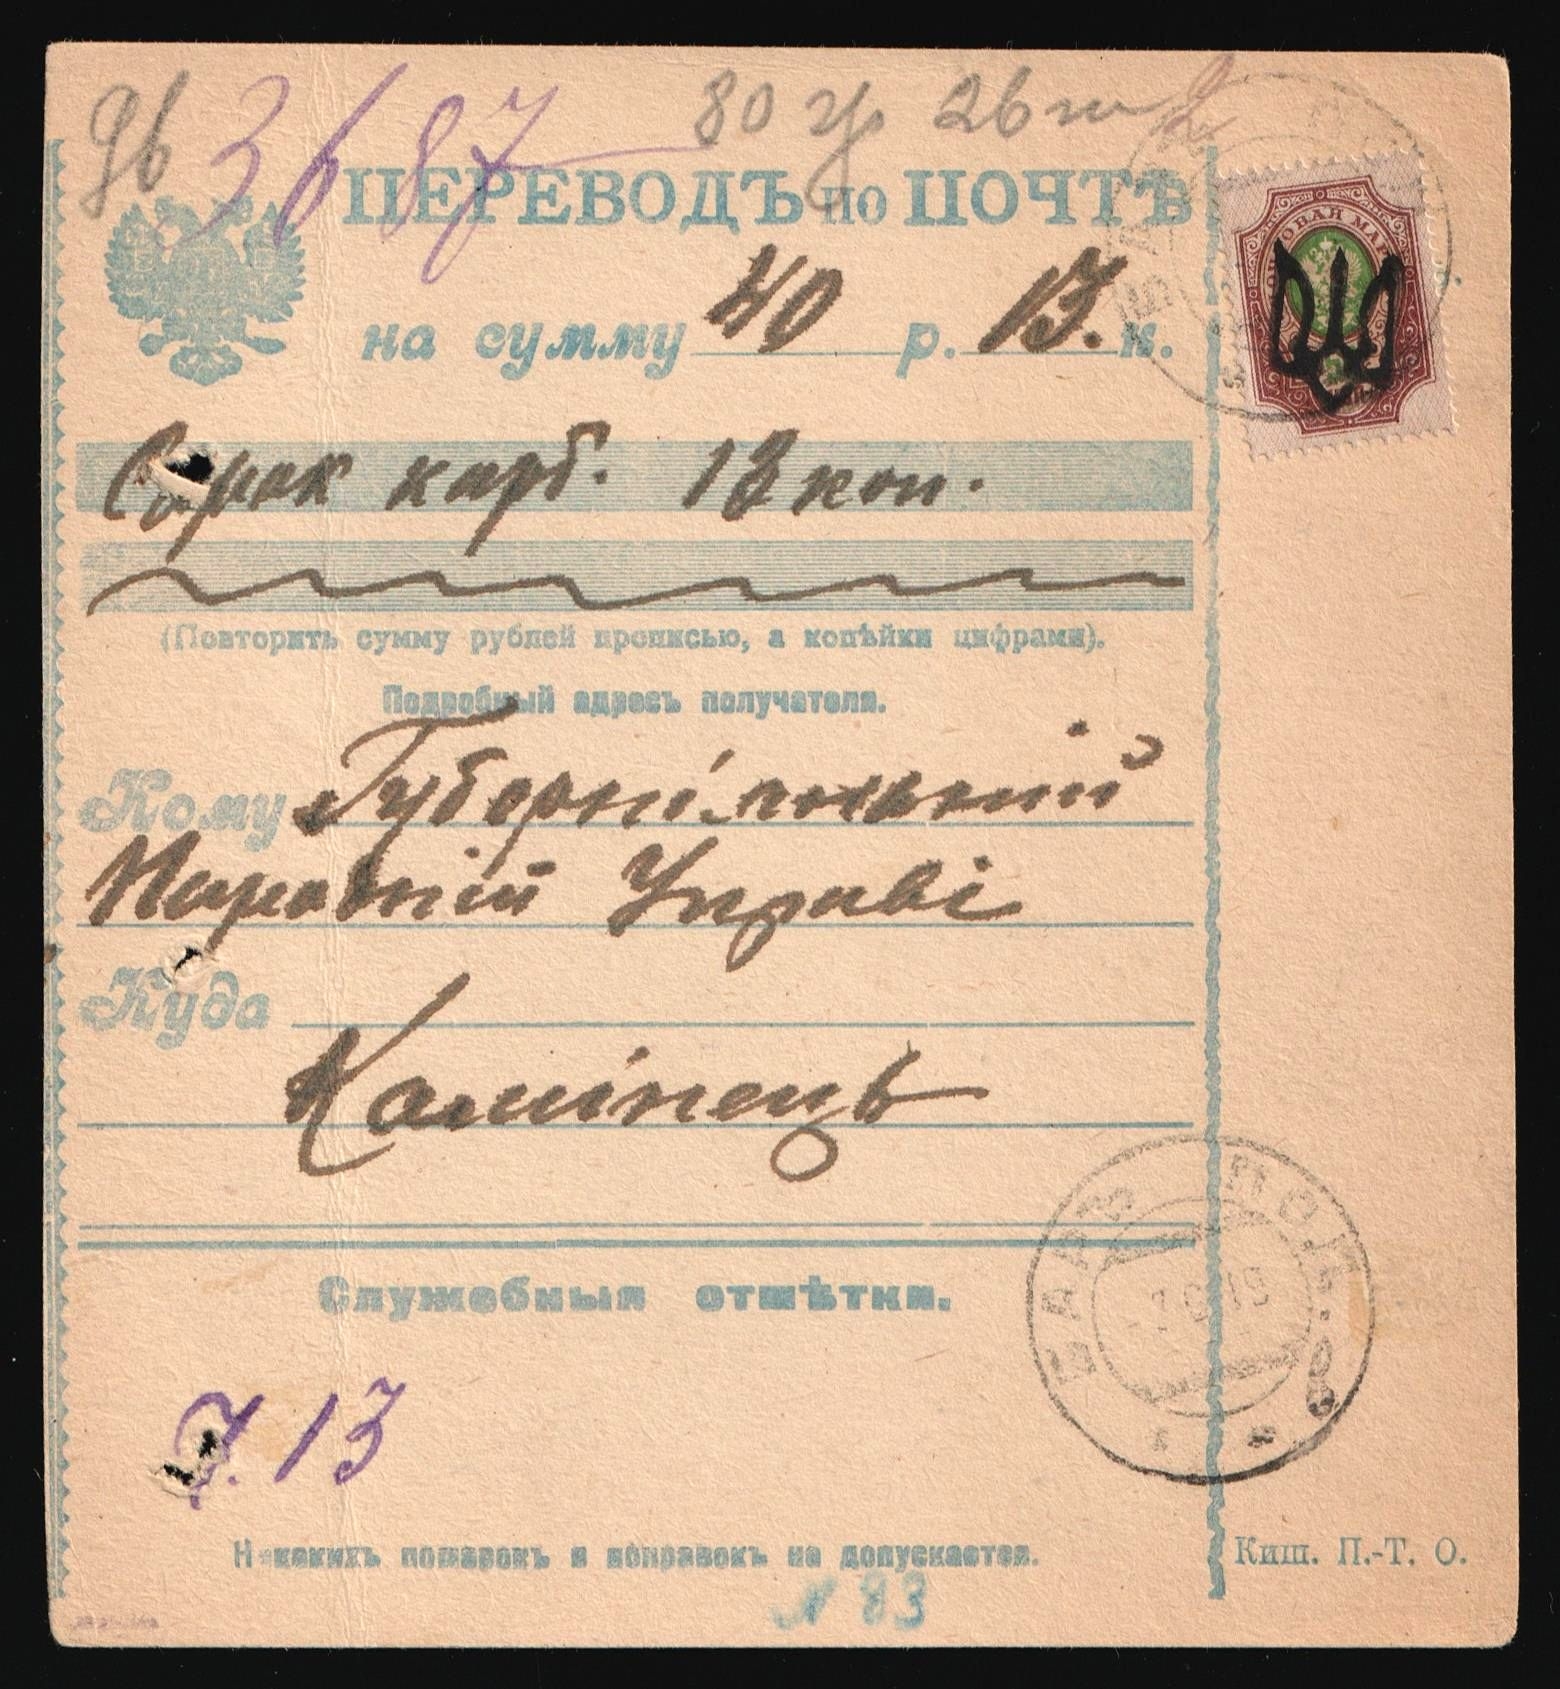 96 3687 80 гр 26 ш
ПЕРЕВОДЪ по ПОЧТѢ
на сумму 40 р. 13. к.
Сорок карб. 13 коп.
(Повторить сумму рублей прописью, а копѣйки цифрами).
Подробный адресъ получателя.
Кому Губерніяльній
Народній Управі
Куда
Камінець
Служебныя отмѣтки.
БАРЪ ПОД.
7. 13
Никакихъ помарокъ и поправокъ не допускается.
Киш. П.-Т. О.
N 83